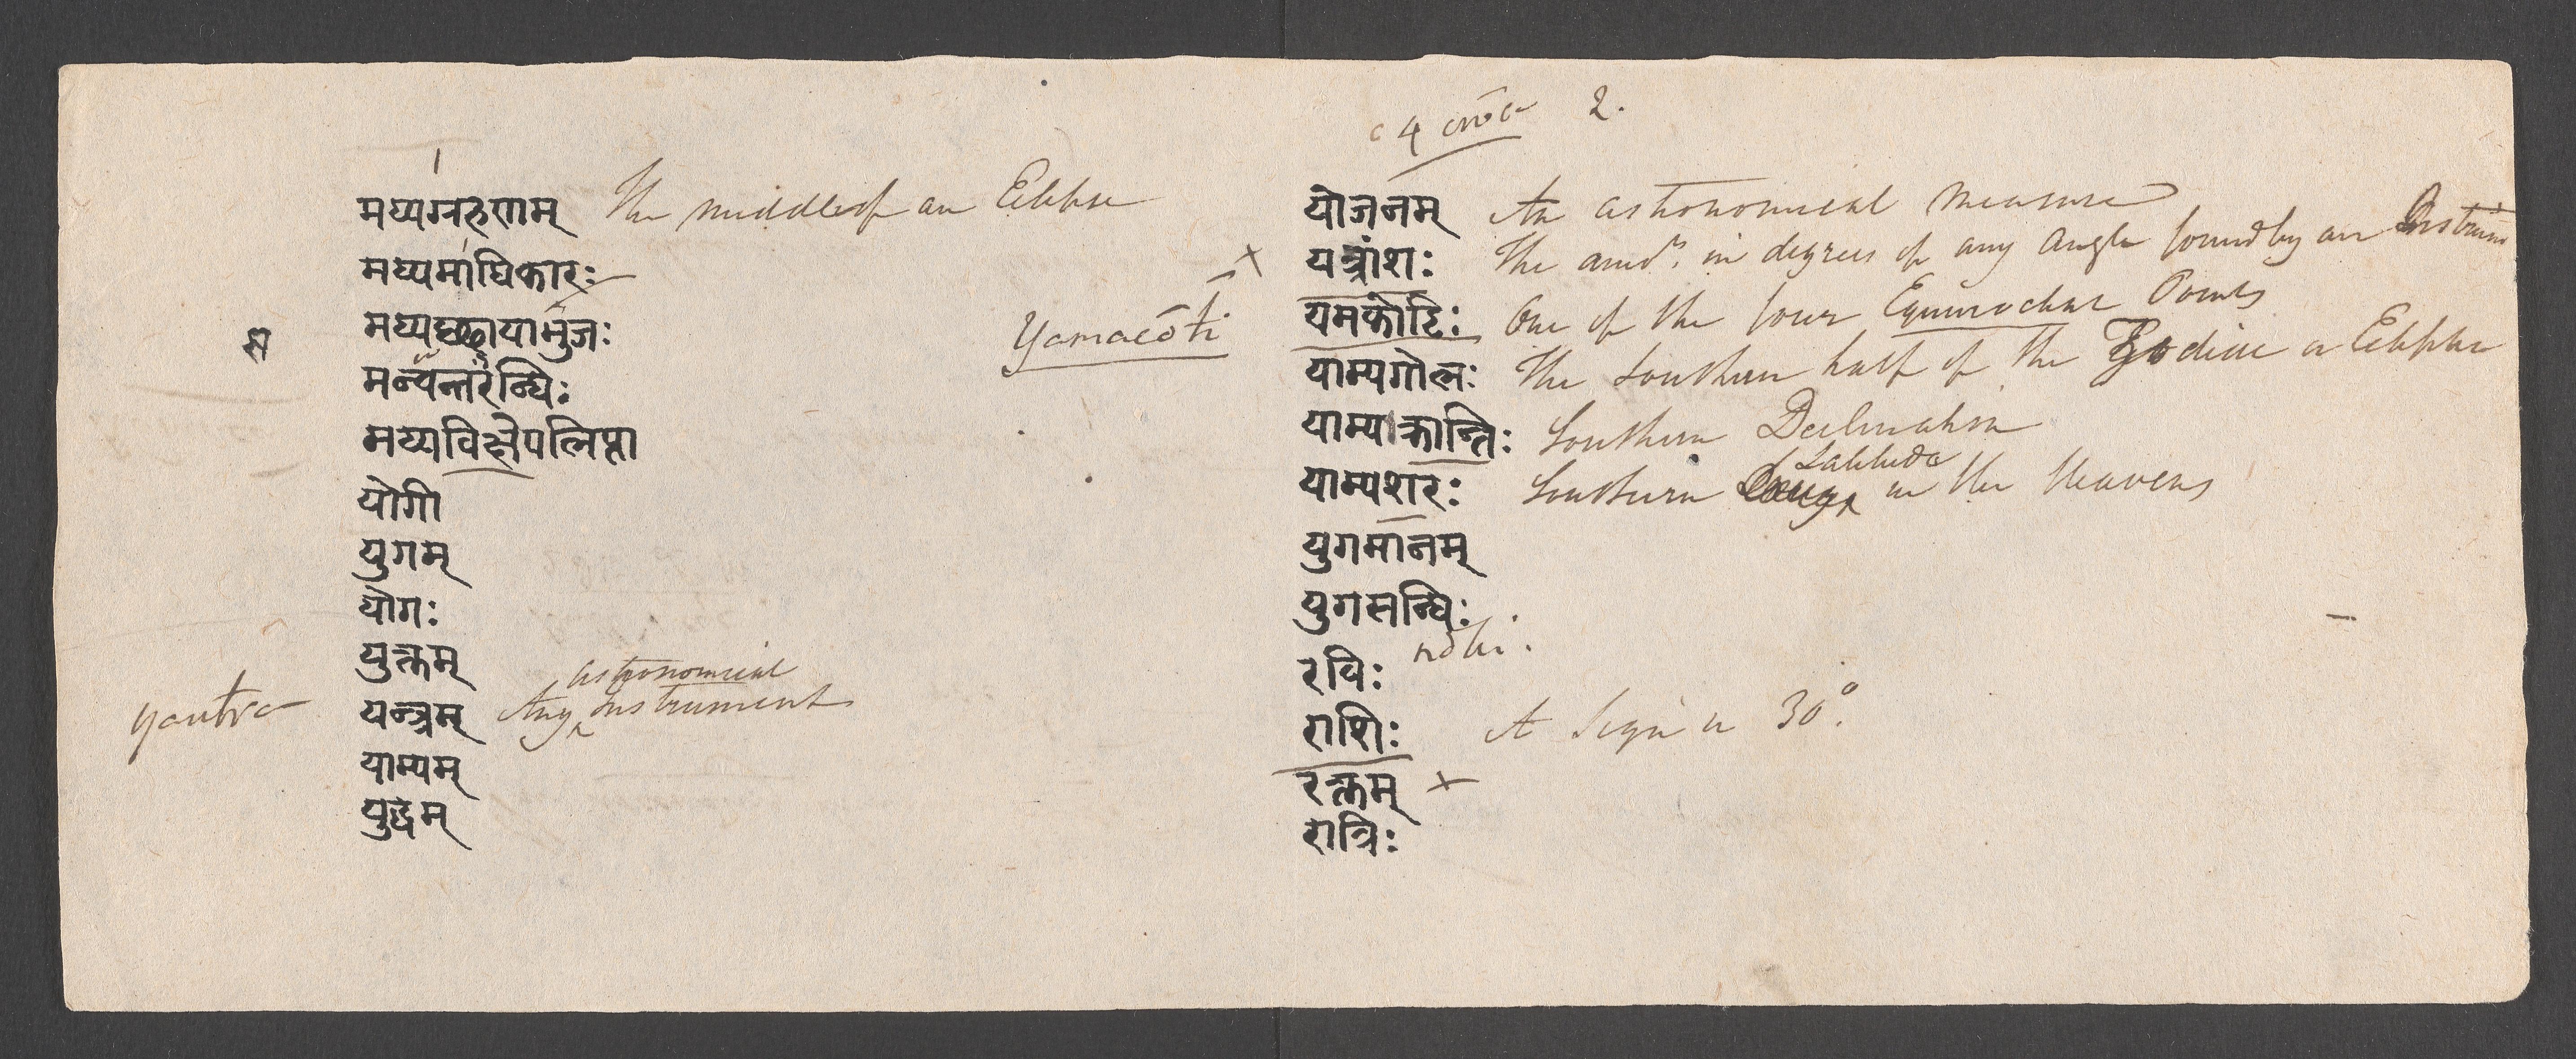 मध्यग्रहणम् The middle of an Eclipse
मध्यमाधिकारः
मध्यच्छायाभुजः
मन्वन्तरन्धिः
मध्यविक्षेपलिप्ता
योगी
युगम्
योगः
युक्तम्
astronomical
yantra यन्त्रम् Any ‸ Instrument
याम्यम्
युद्धम्
4 2.
योजनम् An astronomical Measure
× यन्त्रांशः The amo.^t in degrees of any Angle found by an Instrum
Yamacōti यमकोटिः One of the four Equinoctial Points
याम्यगोलः The Southern half of the Zodiac or Ecliptic
याम्याक्रान्तिः Southern Declination
Latitude
याम्यशरः Southern in the Heavens
युगमानम्
युगसन्धिः
ndhi.
रविः
राशिः A Sign or 30°.
रक्तम् ×
रात्रिः